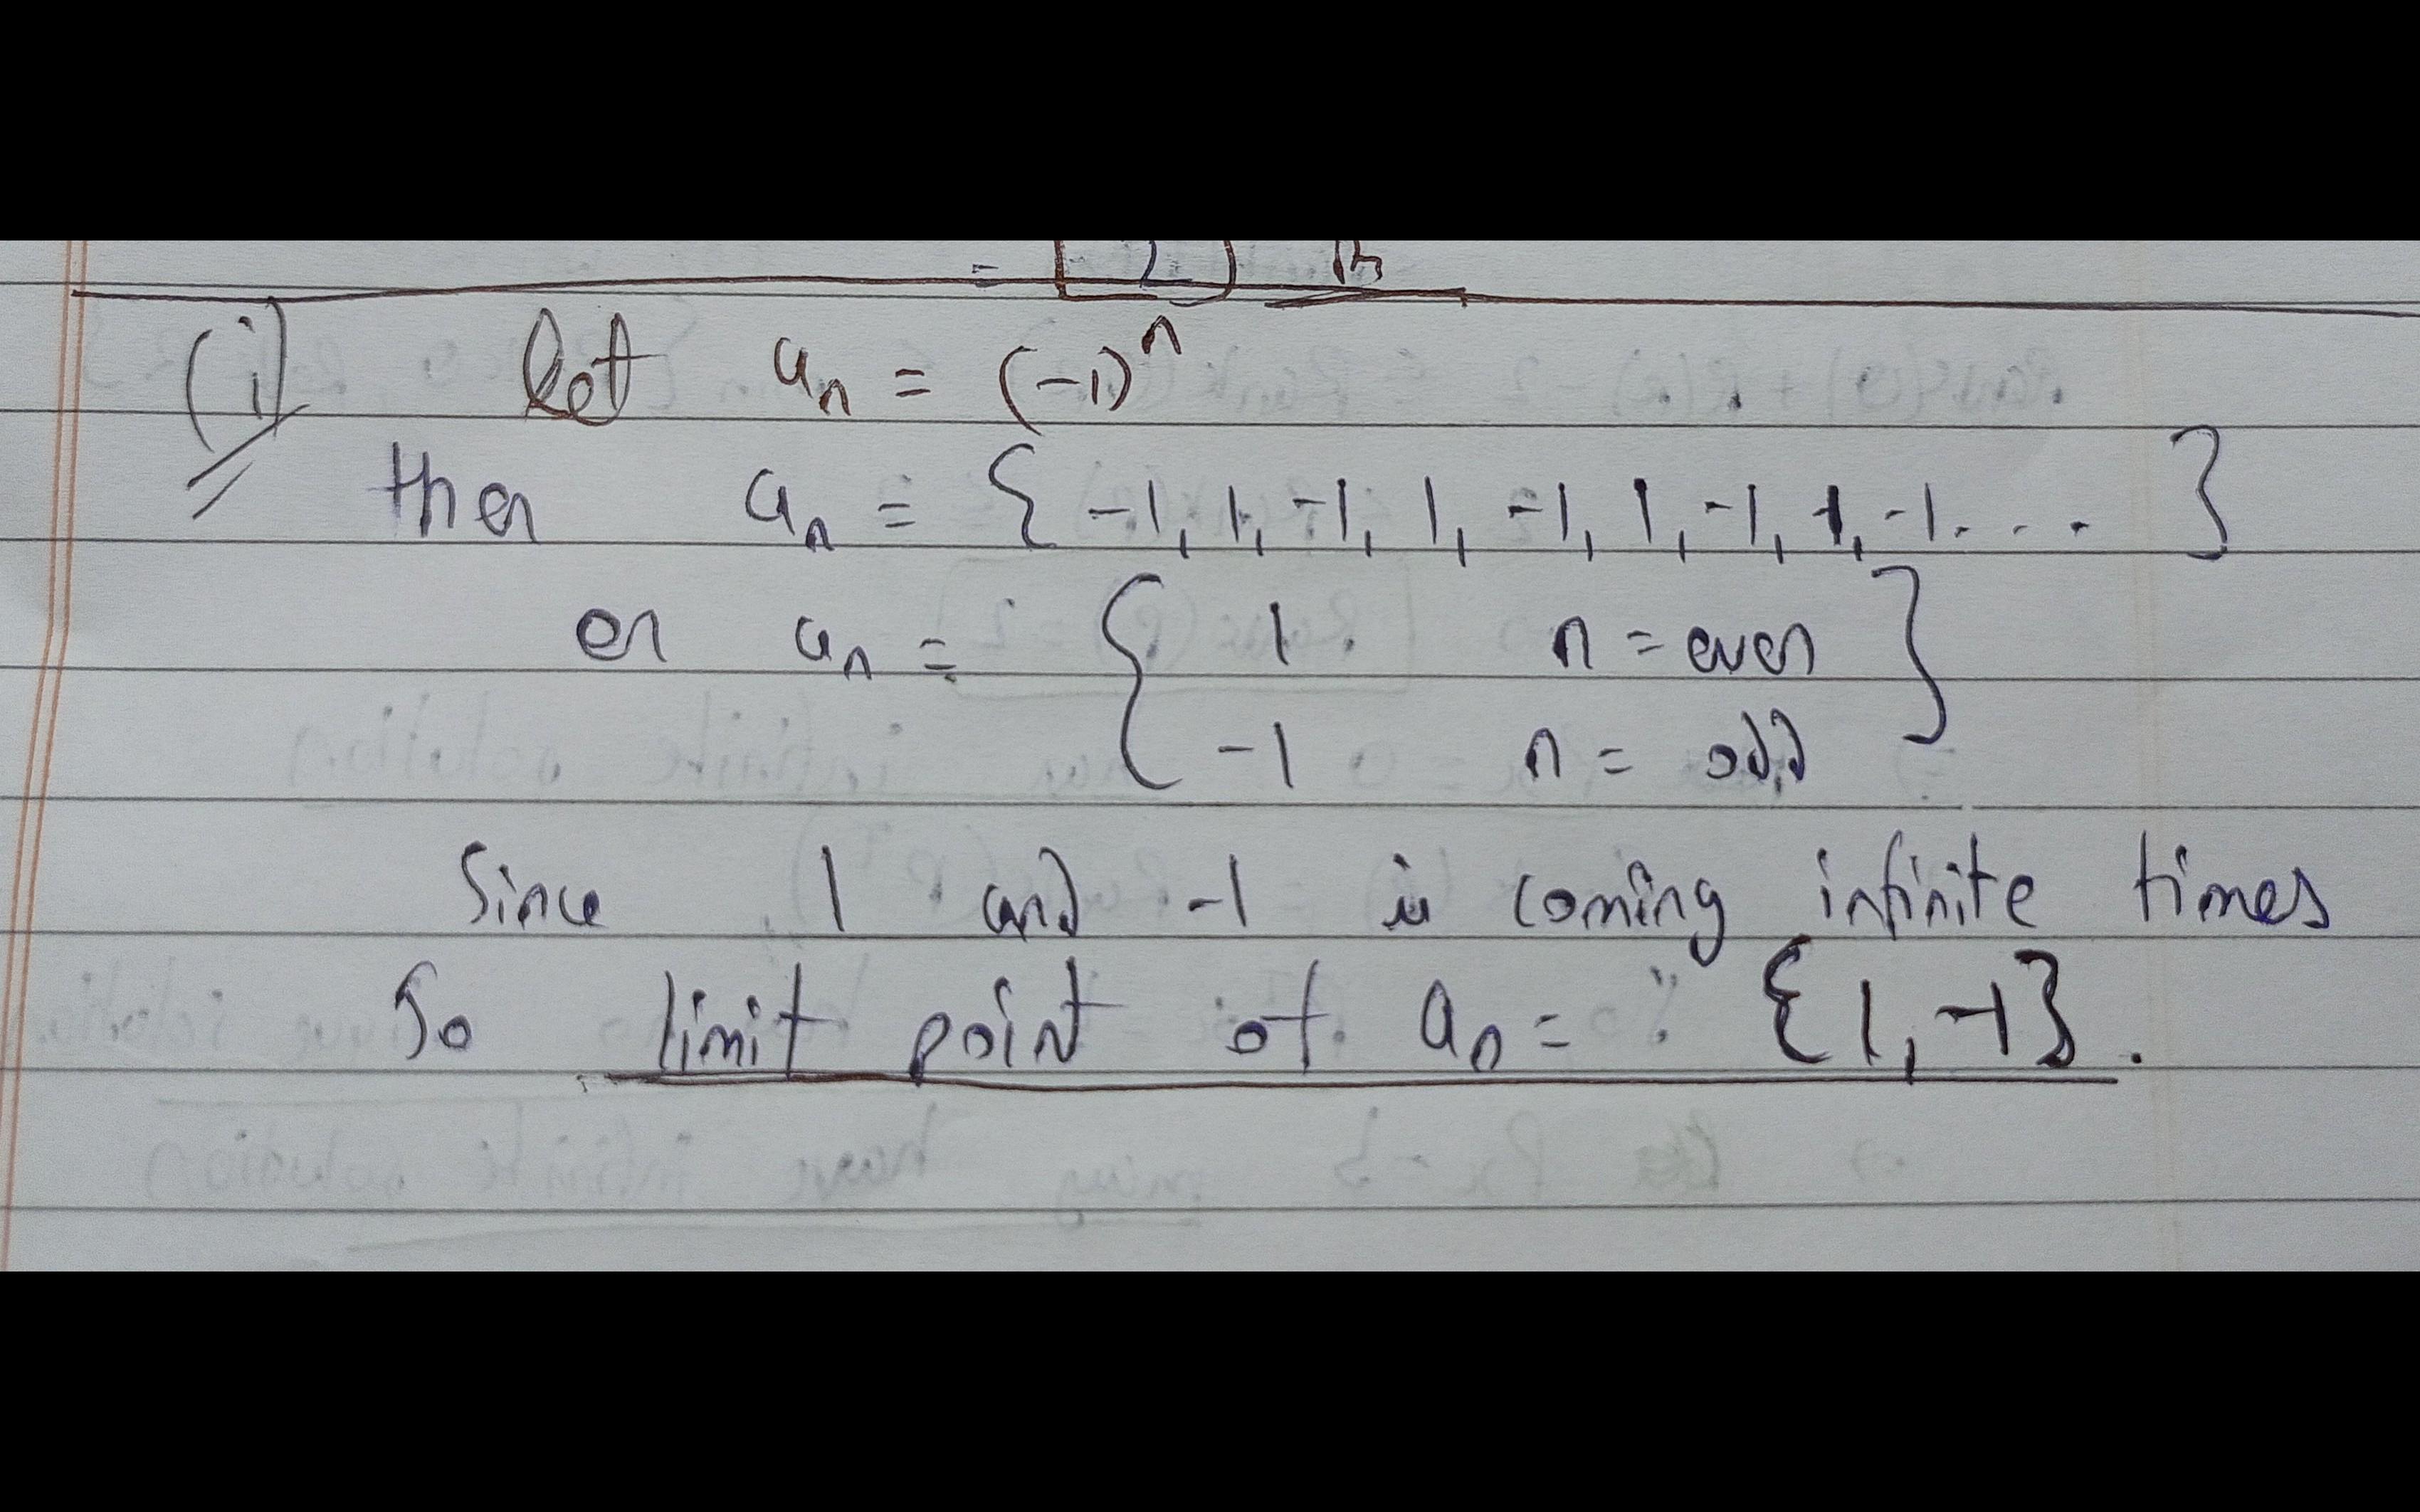 = 2
(i) let aₙ = (-1)ⁿ
then aₙ = { -1, 1, -1, 1, -1, 1, -1, 1, -1 . . . }
or aₙ = { 1 n = even }
-1 n = odd
Since 1 and -1 is coming infinite times
So limit point of aₙ = {1, -1}.